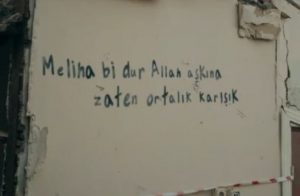 Meliha bi dur Allah aşkına
zaten ortalık karışık